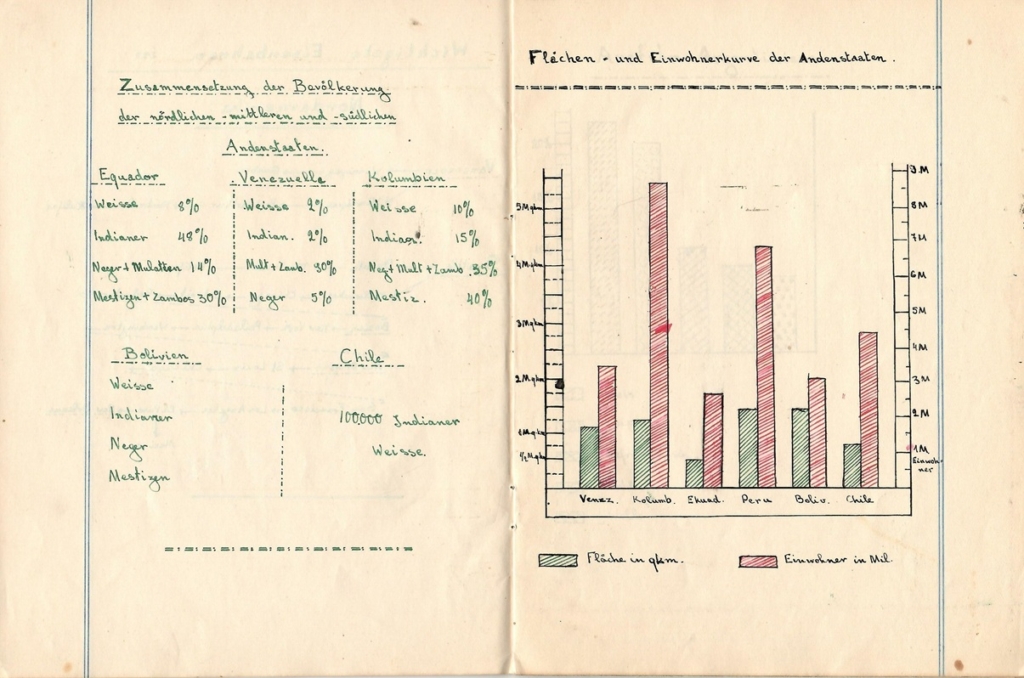 Zusammensetzung der Bevölkerung
der nördlichen - mittleren und - südlichen
Andenstaaten.
Equador
Weisse 8%
Indianer 48%
Neger + Mulatten 14%
Mestizen + Zambos 30%
Venezuella
Weisse 2%
Indian. 2%
Mult + Zamb. 90%
Neger 5%
Kolumbien
Weisse 10%
Indian. 15%
Neg + Mult + Zamb. 35%
Mestiz. 40%
Bolivien
Weisse
Indianer
Neger
Mestizen
Chile
100.000 Indianer
Weisse.
Flächen - und Einwohnerkurve der Andenstaaten.
5 M qkm
4 M qkm
3 M qkm
2 M qkm
1 M qkm
1/2 M qkm
9 M
8 M
7 M
6 M
5 M
4 M
3 M
2 M
1 M
Einwoh-
ner
Venez. Kolumb. Ekuad. Peru Boliv. Chile
Fläche in qkm. Einwohner in Mil.